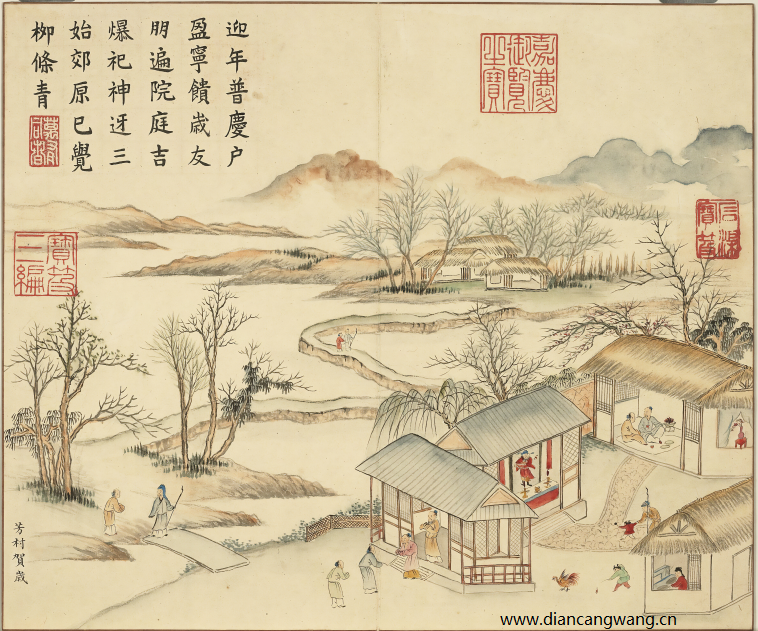 迎年普慶户
盈寧饋歲友
朋遍院庭吉
爆祀神迓三
始郊原已覺
柳條青
嘉慶
御覽
之寶
石渠
寶笈
寶笈
三編
芳村賀歲
www.diancangwang.cn